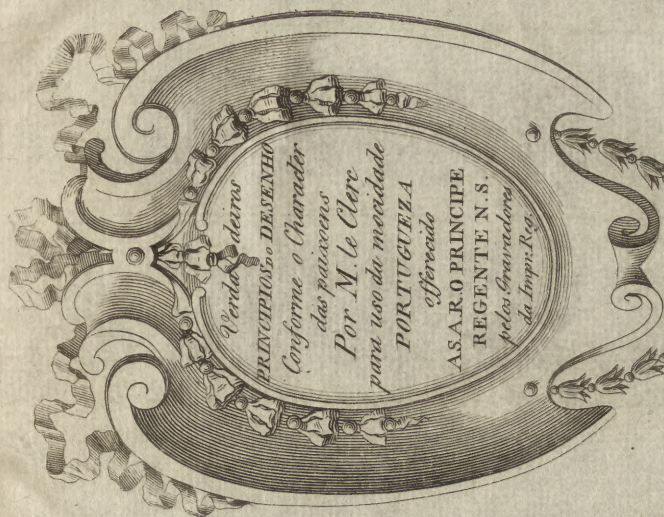 Verdadeiros
PRINCIPIOS DO DESENHO
Conforme o Character
das paixoens
Por M. le Clerc
para uso da mocidade
PORTUGUEZA
offerecido
A S.A.R.O PRINCIPE
REGENTE N. S.
pelos Gravadores
da Impr. Reg.